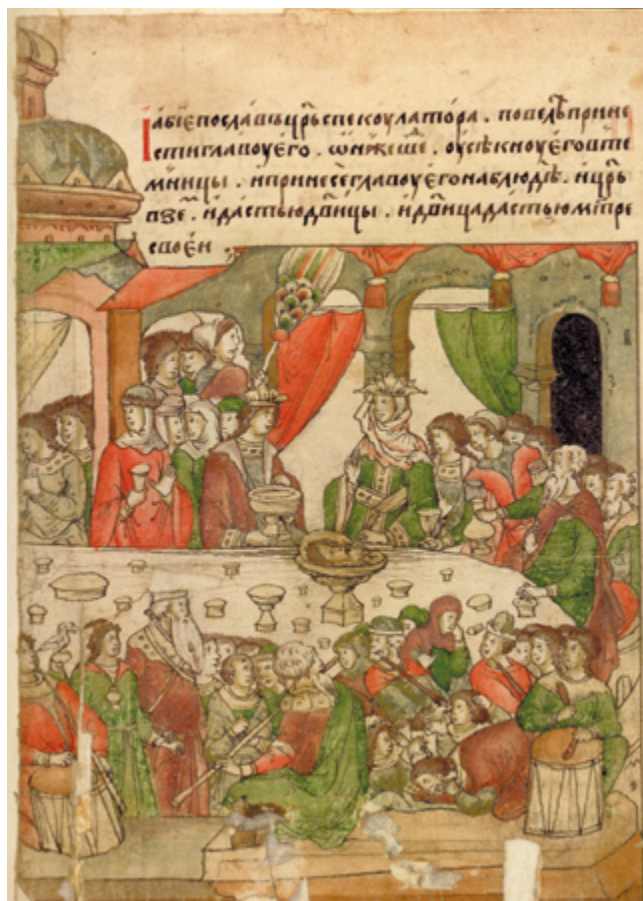 І абїе пославъ цр҃ь спекоулатора . повелѣ прине
сти главоу єго . ѡн же шє . оусѣкноу єго в те
мници . и принесе главоу єго на блюдѣ . и цр҃ь
взе . и дастъ ю дв҃ици . и дв҃ица дасть ю мт҃ре
своєи ;